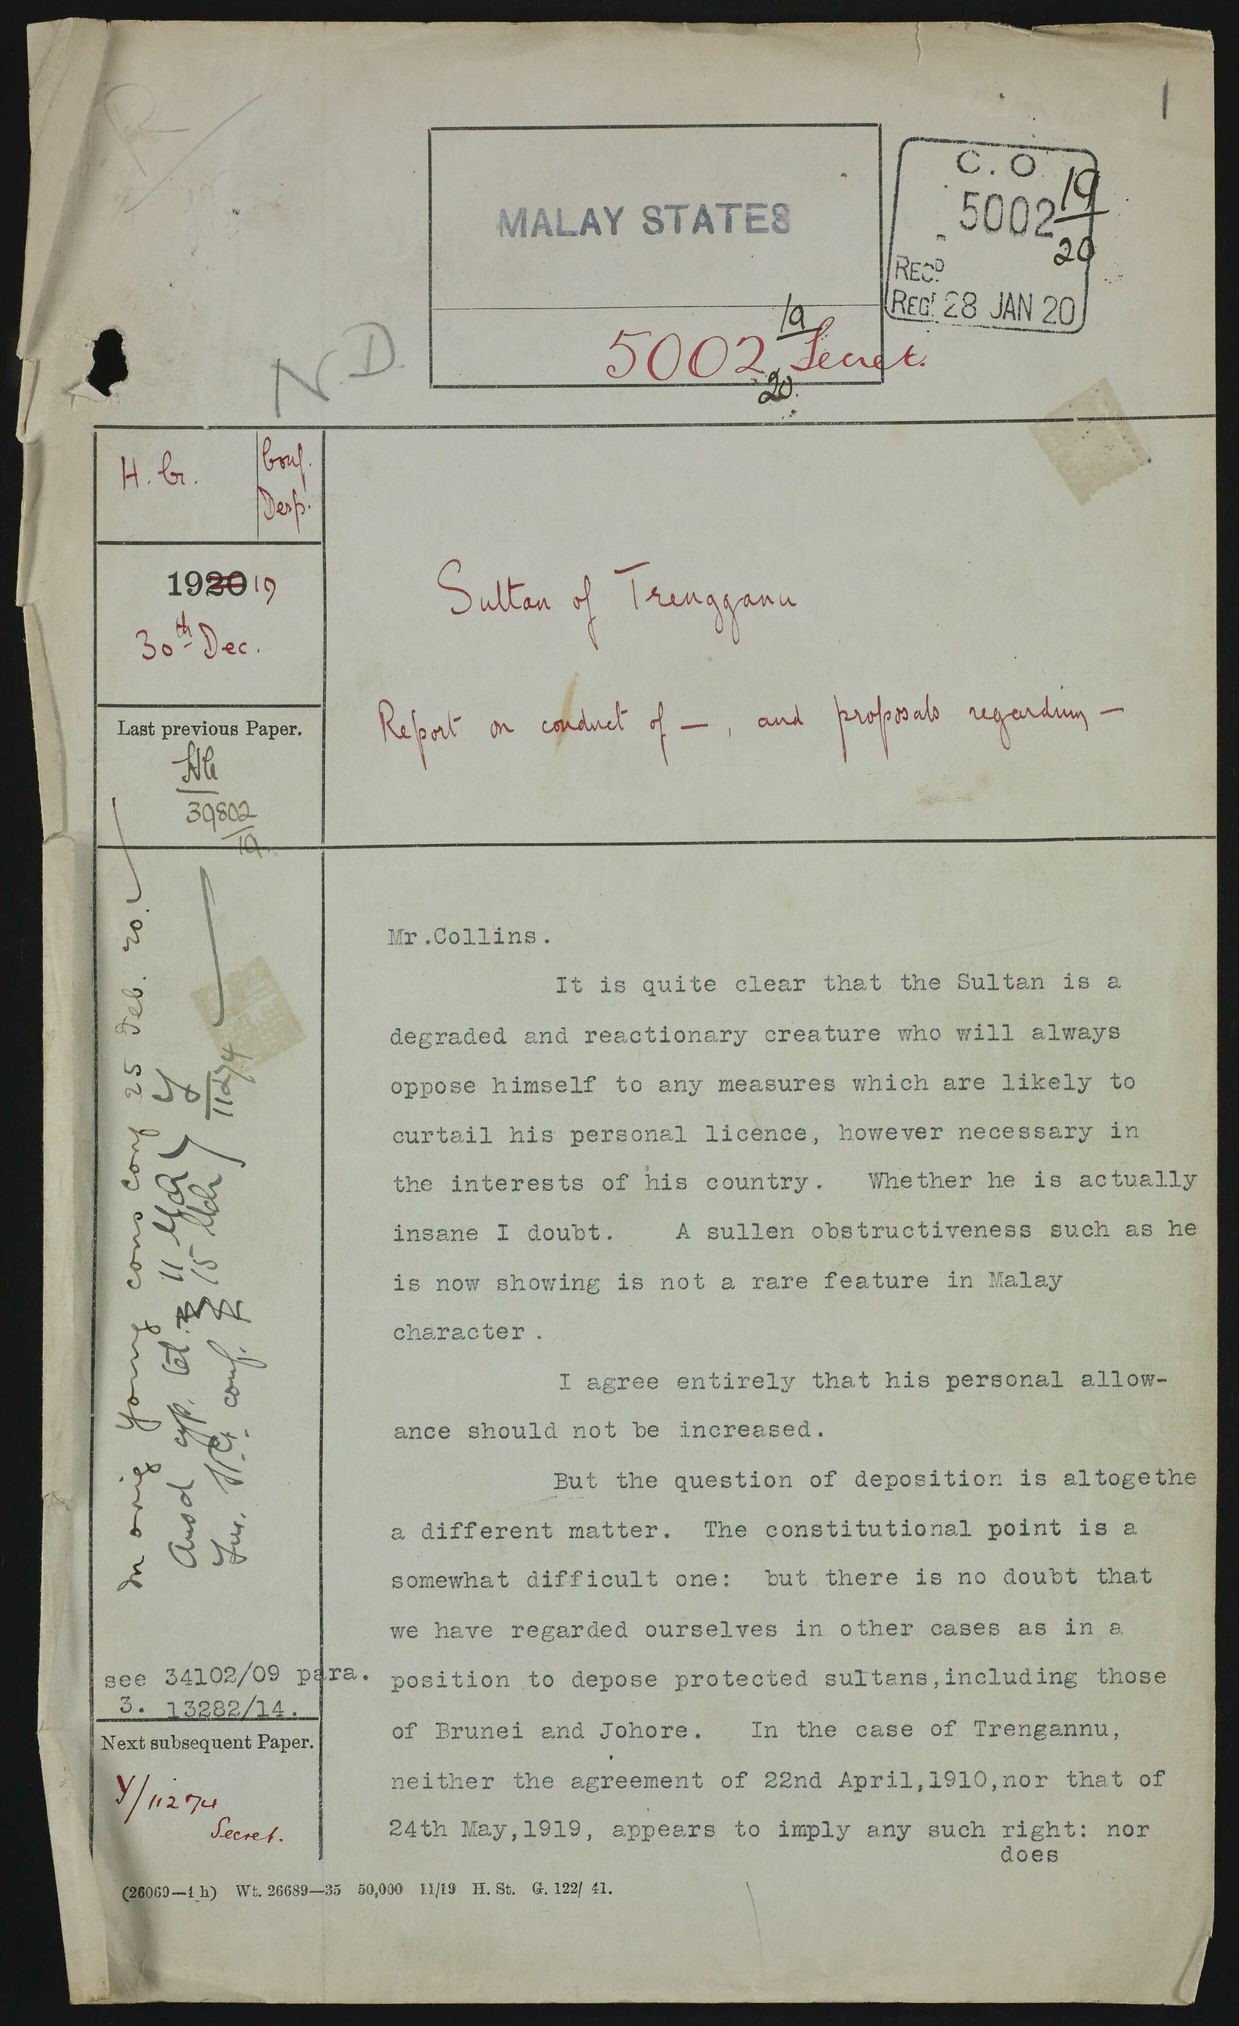 1
MALAY STATES
C. O.
5002 19/20
REC^D
REG^D 28 JAN 20
5002 19/20 Secret.
N.D.
H. C.
Conf.
Desp.
1920 19
30th Dec.
Sultan of Trengganu
Report on conduct of — , and proposals regarding —
Last previous Paper.
HC
39802
19
Mr.Collins.
It is quite clear that the Sultan is a
degraded and reactionary creature who will always
oppose himself to any measures which are likely to
curtail his personal licence, however necessary in
the interests of his country. Whether he is actually
insane I doubt. A sullen obstructiveness such as he
is now showing is not a rare feature in Malay
character.
I agree entirely that his personal allow-
ance should not be increased.
But the question of deposition is altogethe
a different matter. The constitutional point is a
somewhat difficult one: but there is no doubt that
we have regarded ourselves in other cases as in a
position to depose protected sultans,including those
of Brunei and Johore. In the case of Trengannu,
neither the agreement of 22nd April,1910,nor that of
24th May,1919, appears to imply any such right: nor
does
orig Young cons conf 25 Feb. 20.
Ansd cyp. tel. 11 Mch
conf. 15 Mch
11274
see 34102/09 para.
3. 13282/14.
Next subsequent Paper.
Y/11274
Secret.
(26069—4 h) Wt. 26689—35 50,000 11/19 H. St. G. 122/ 41.